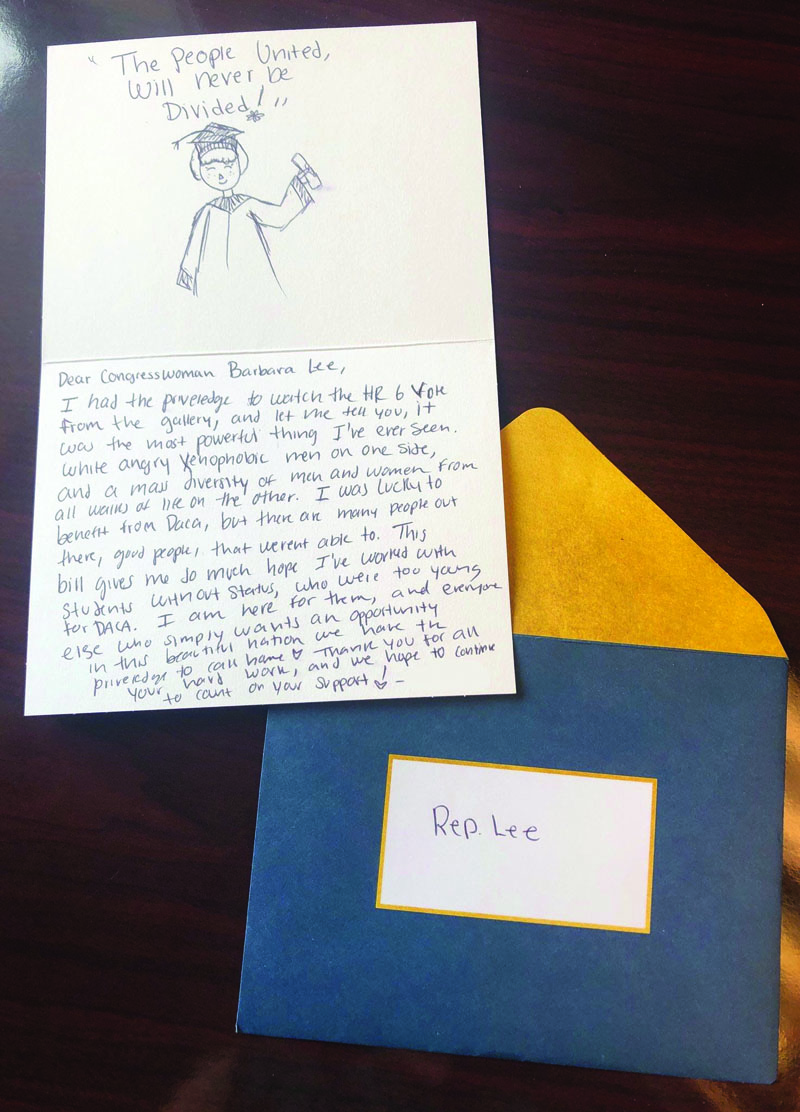 "The People United,
Will never be
Divided!"
Dear Congresswoman Barbara Lee,
I had the priveledge to watch the HR 6 Vote
from the gallery, and let me tell you, it
was the most powerful thing I've ever seen.
White angry Xenophobic men on one side,
and a mass diversity of men and women from
all walks of life on the other. I was lucky to
benefit from Daca, but there are many people out
there, good people, that werent able to. This
bill gives me so much hope I've worked with
Students without Status, who were too young
for DACA. I am here for them, and everyone
else who simply wants an opportunity
in this beautiful nation we have the
priveledge to call home ♡ Thank you for all
your hard work, and we hope to continue
to count on your support! ♡ –
Rep. Lee